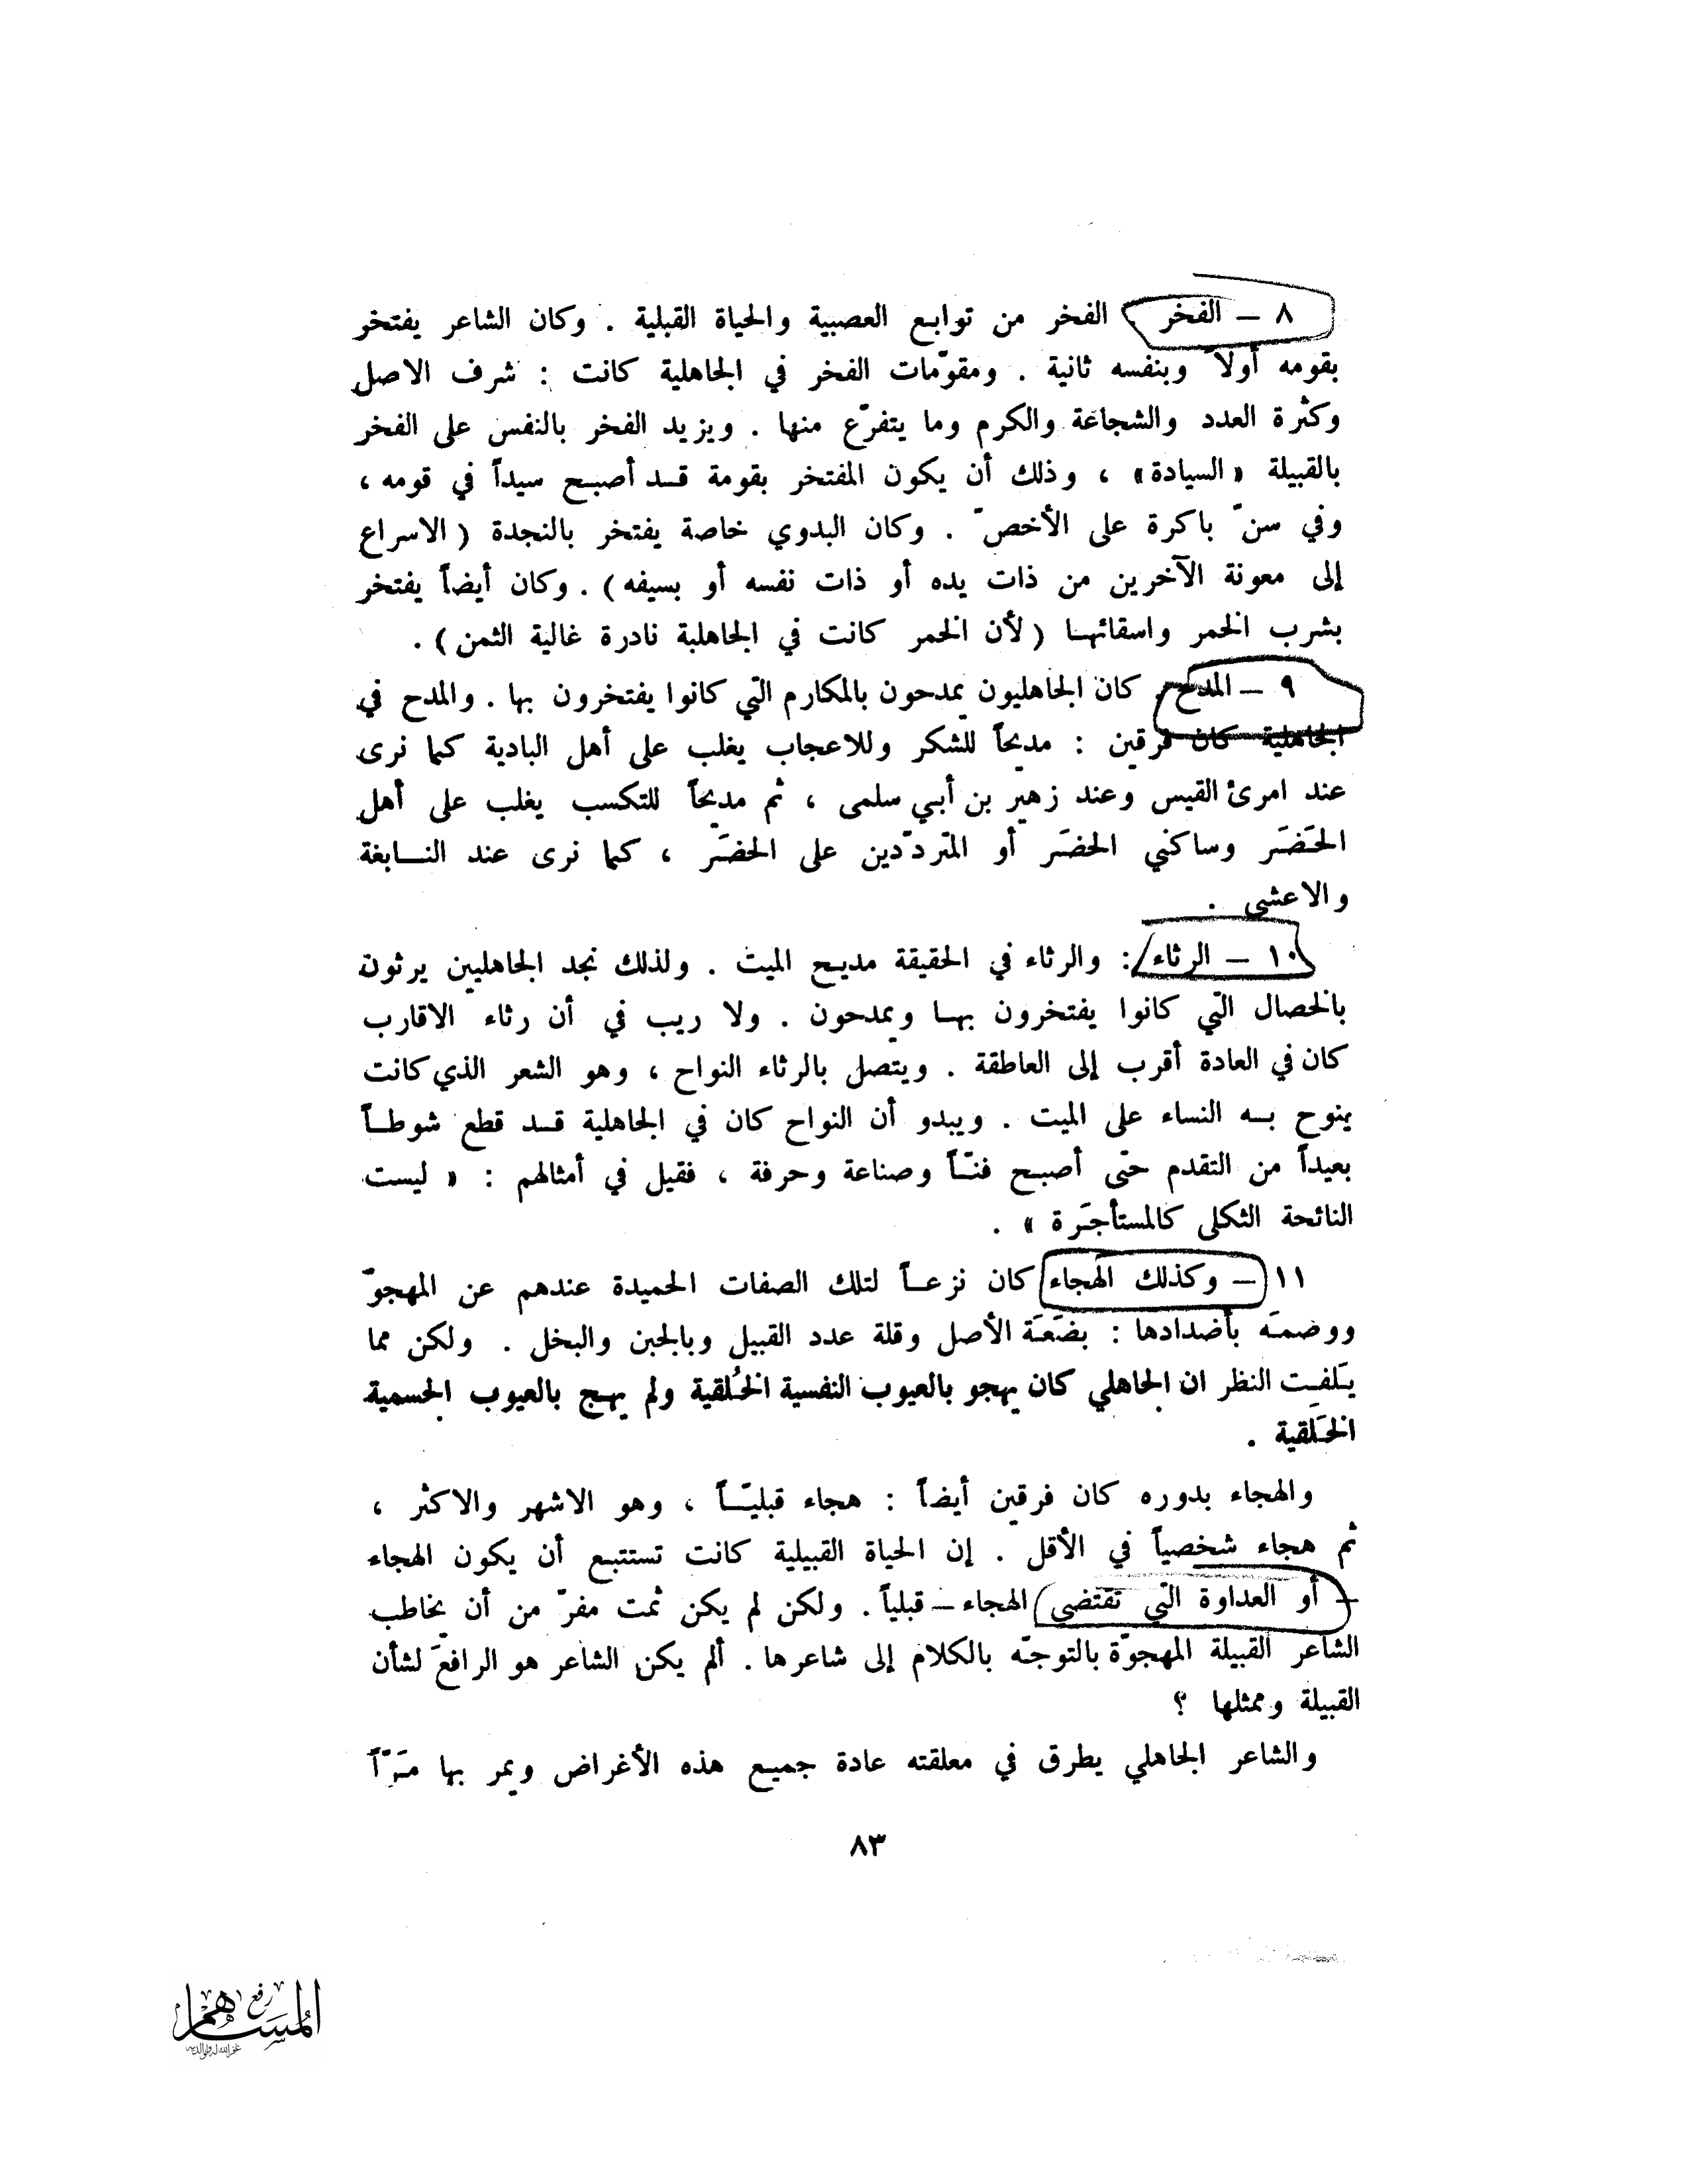 ٨ – الفخر الفخر من توابع العصبية والحياة القبلية . وكان الشاعر يفتخر
بقومه أولاً وبنفسه ثانية . ومقوّمات الفخر في الجاهلية كانت : شرف الاصل
وكثرة العدد والشجاعة والكرم وما يتفرّع منها . ويزيد الفخر بالنفس على الفخر
بالقبيلة « السيادة » ، وذلك أن يكون المفتخر بقومة قد أصبح سيداً في قومه ،
وفي سنّ باكرة على الأخصّ . وكان البدوي خاصة يفتخر بالنجدة ( الاسراع
إلى معونة الآخرين من ذات يده أو ذات نفسه أو بسيفه ) . وكان أيضاً يفتخر
بشرب الخمر واسقائها ( لأن الخمر كانت في الجاهلية نادرة غالية الثمن ) .
٩ – المدح كان الجاهليون يمدحون بالمكارم التي كانوا يفتخرون بها . والمدح في
الجاهلية كان فرقين : مديحاً للشكر وللاعجاب يغلب على أهل البادية كما نرى
عند امرئ القيس وعند زهير بن أبي سلمى ، ثم مديحاً للتكسب يغلب على أهل
الحَضَر وساكني الحضَر أو المتردّدين على الحضَر ، كما نرى عند النابغة
والاعشى .
١٠ – الرثاء : والرثاء في الحقيقة مديح الميت . ولذلك نجد الجاهليين يرثون
بالخصال التي كانوا يفتخرون بها ويمدحون . ولا ريب في أن رثاء الاقارب
كان في العادة أقرب إلى العاطقة . ويتصل بالرثاء النواح ، وهو الشعر الذي كانت
ينوح به النساء على الميت . ويبدو أن النواح كان في الجاهلية قد قطع شوطاً
بعيداً من التقدم حتى أصبح فنّاً وصناعة وحرفة ، فقيل في أمثالهم : « ليست
النائحة الثكلى كالمستأجَرة » .
١١ – وكذلك الهجاء كان نزعاً لتلك الصفات الحميدة عندهم عن المهجوّ
ووضمَه بأضدادها : بضَعَة الأصل وقلة عدد القبيل وبالجبن والبخل . ولكن مما
يَلفت النظر ان الجاهلي كان يهجو بالعيوب النفسية الخُلقية ولم يهج بالعيوب الجسمية
الخَلقية .
والهجاء بدوره كان فرقين أيضاً : هجاء قبليّاً ، وهو الاشهر والاكثر ،
ثم هجاء شخصياً في الأقل . إن الحياة القبيلية كانت تستتبع أن يكون الهجاء
– أو العداوة التي تقتضي الهجاء – قبلياً . ولكن لم يكن ثمت مفرّ من أن يخاطب
الشاعر القبيلة المهجوّة بالتوجّه بالكلام إلى شاعرها . ألم يكن الشاعر هو الرافعَ لشأن
القبيلة وممثلها ؟
والشاعر الجاهلي يطرق في معلقته عادة جميع هذه الأغراض ويمر بها مَرّاً
٨٣
رفع
المساهم
غفر الله له ولوالديه